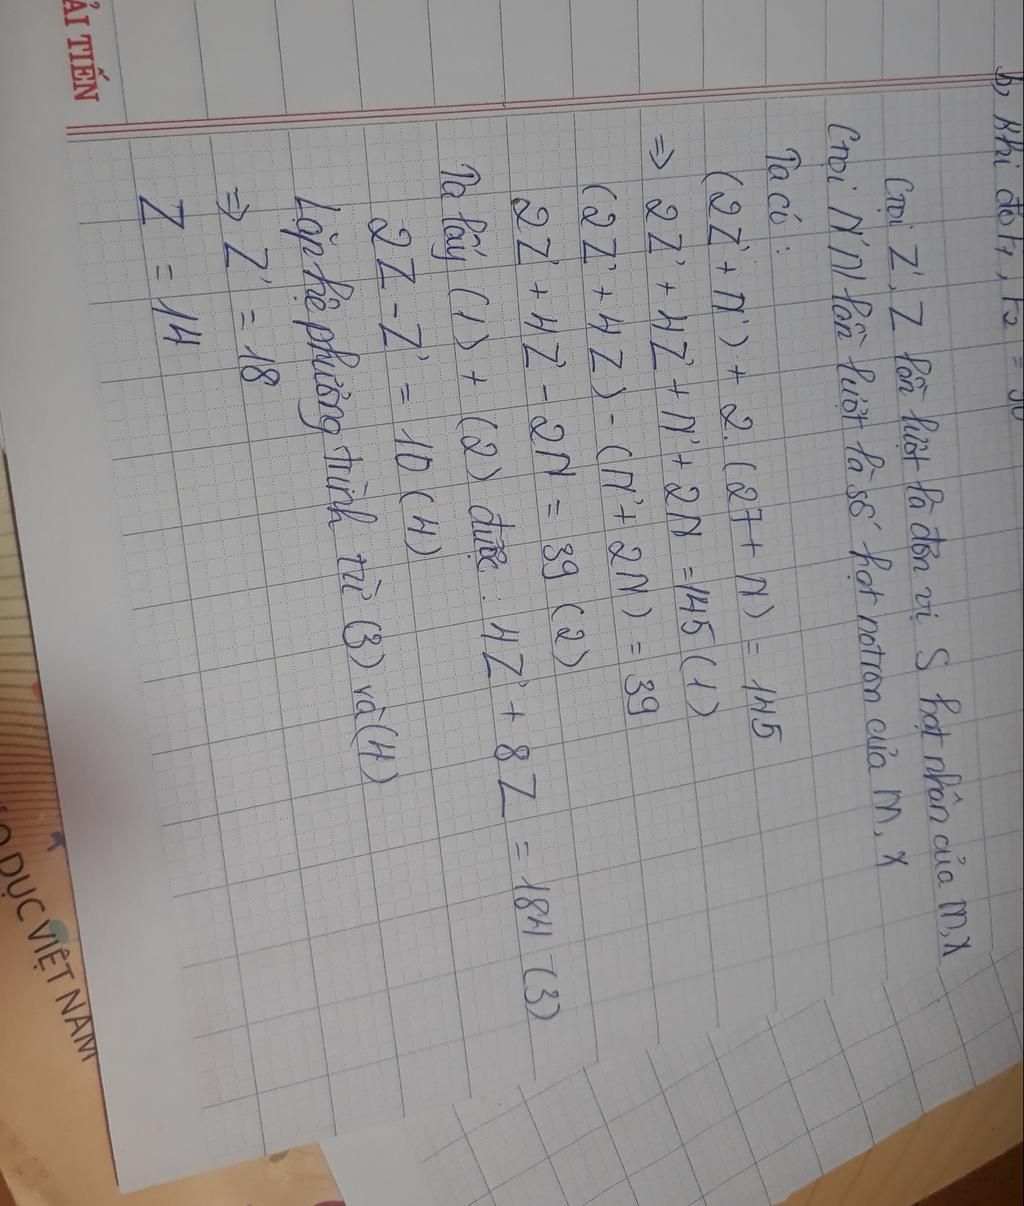 b, khi đó F1, F2 = 30
Gọi Z', Z lần lượt là đơn vị S hạt nhân của M, X
Gọi N'N lần lượt là số hạt notron của M, X
Ta có:
(2Z' + N') + 2.(27 + N) = 145
=> 2Z' + 4Z' + N' + 2N = 145 (1)
(2Z' + 4Z) - (N' + 2N) = 39
2Z' + 4Z - 2N = 39 (2)
Ta lấy (1) + (2) được: 4Z' + 8Z = 184 (3)
2Z - Z' = 10 (4)
Lập hệ phương trình từ (3) và (4)
=> Z' = 18
Z = 14
ẢI TIẾN
O DỤC VIỆT NAM